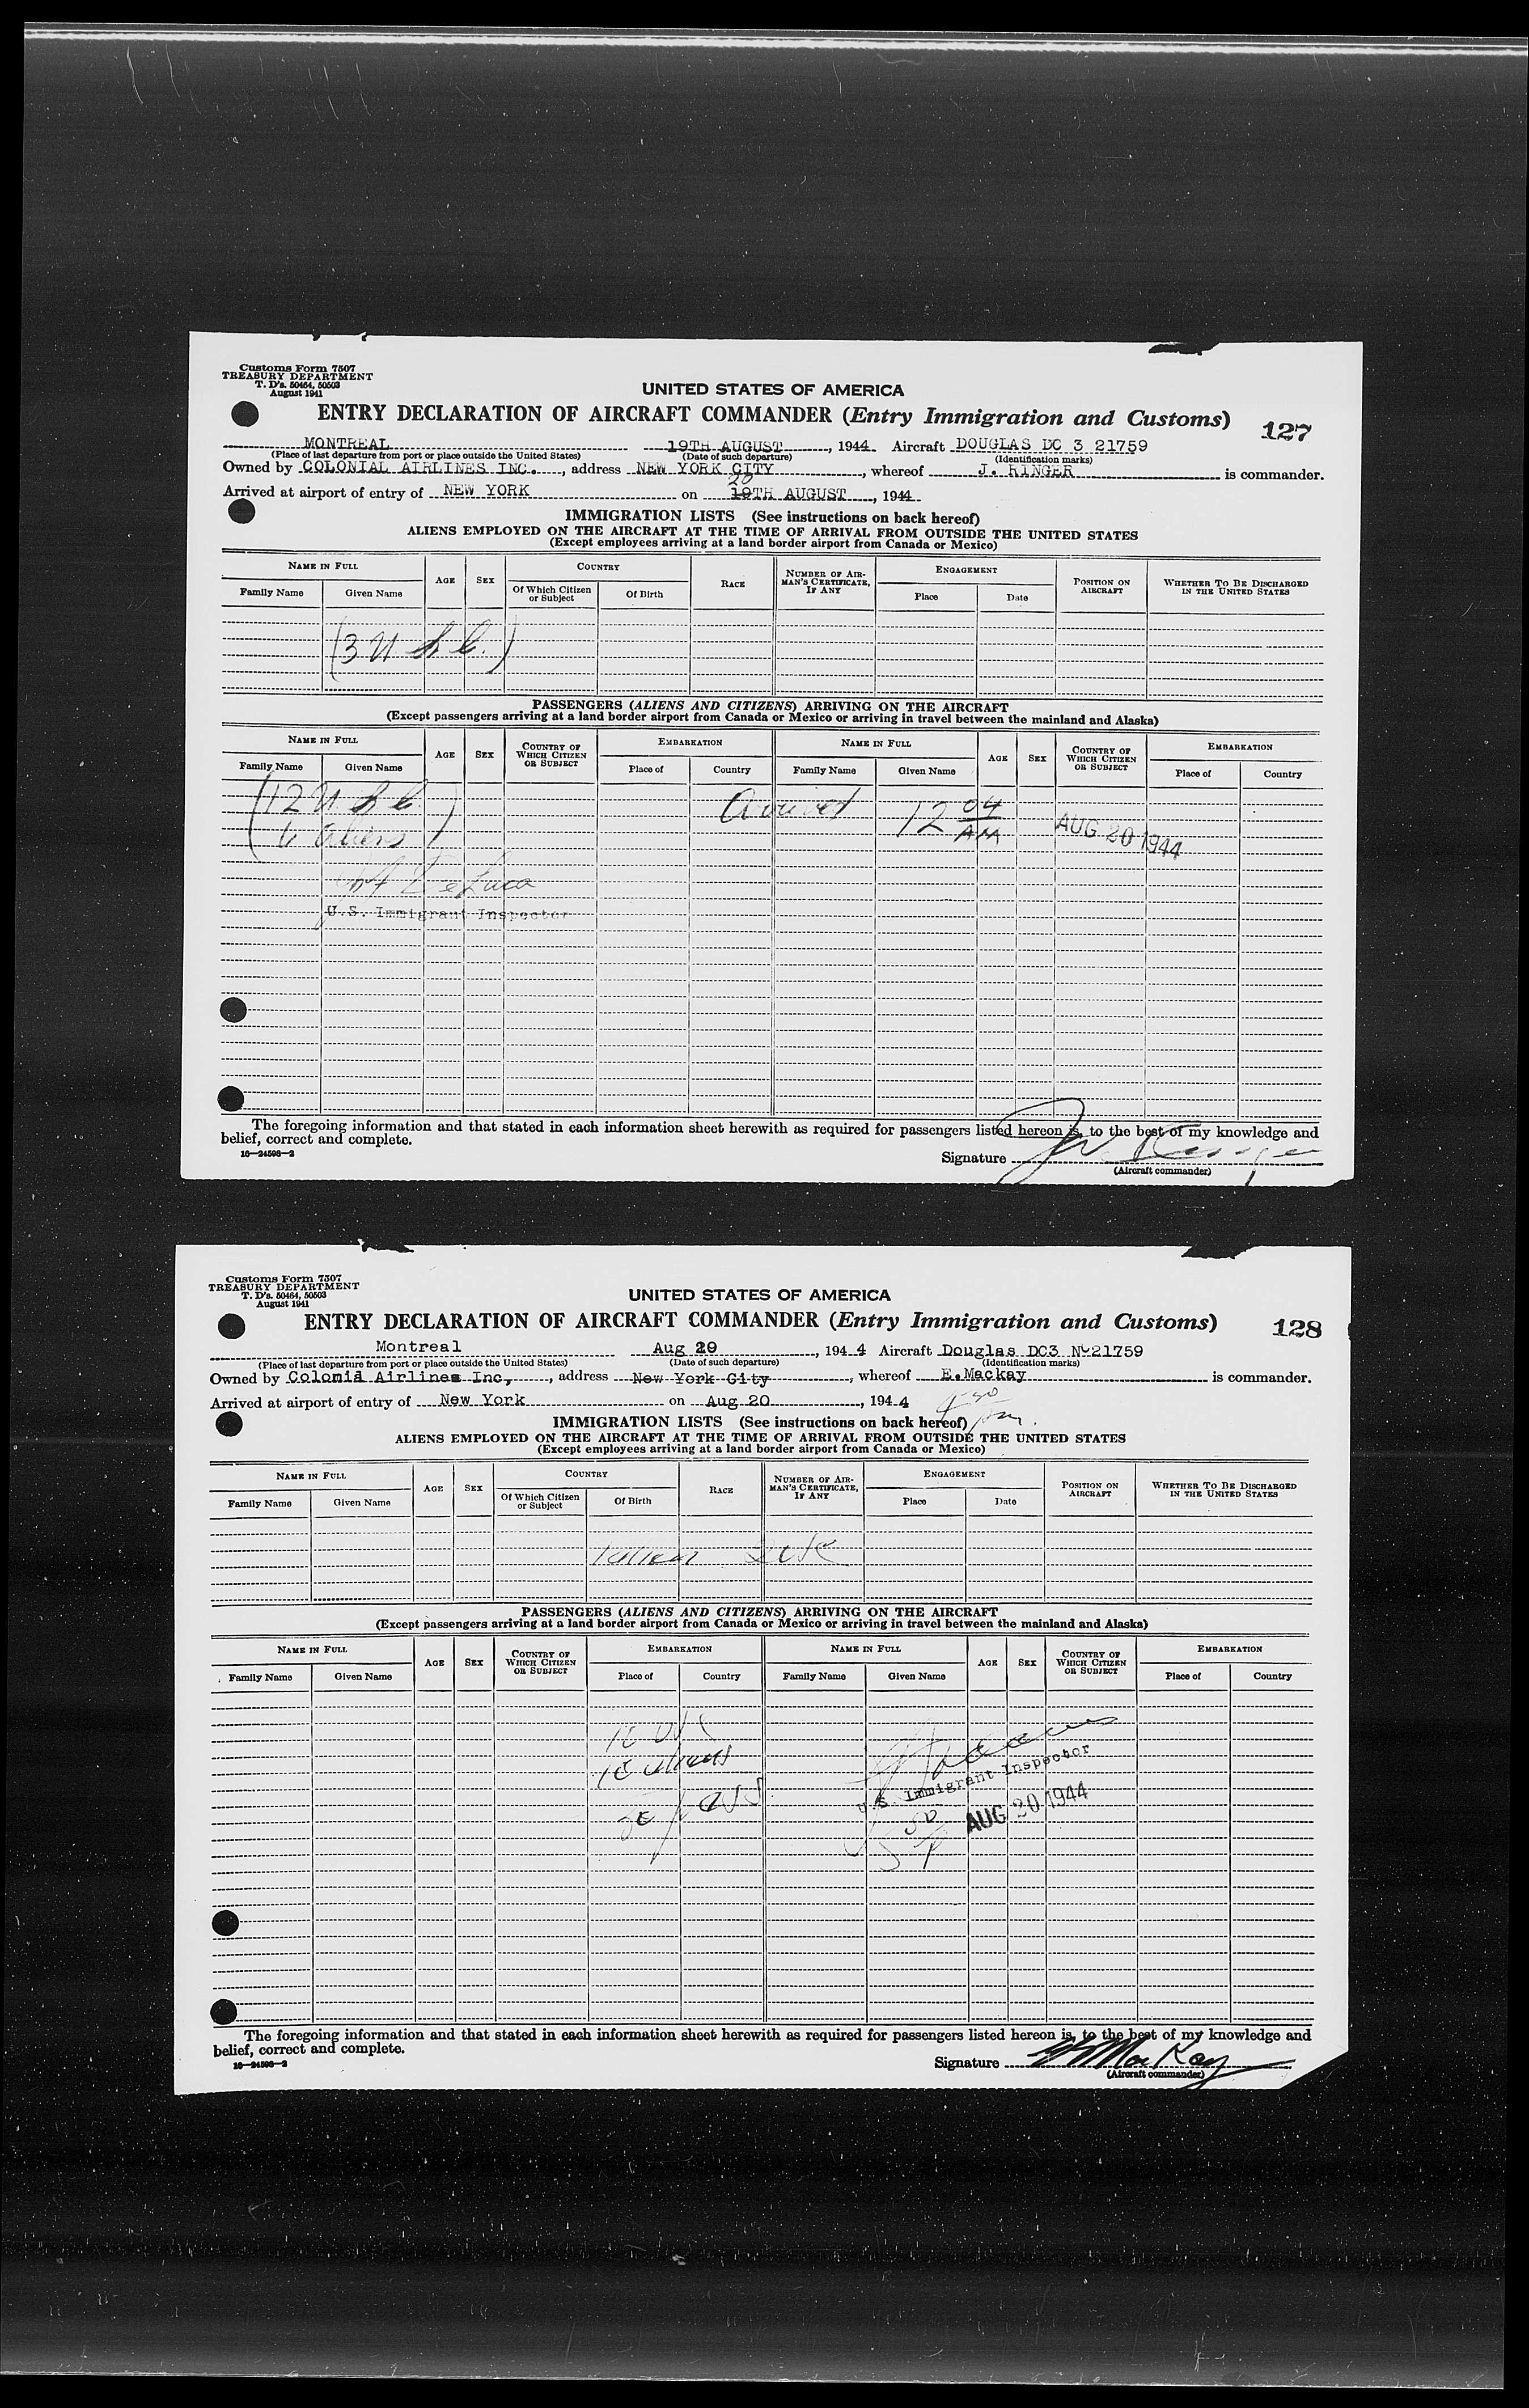 Customs Form 7507
TREASURY DEPARTMENT
T. D's. 50464, 50503
August 1941
UNITED STATES OF AMERICA
ENTRY DECLARATION OF AIRCRAFT COMMANDER (Entry Immigration and Customs)
127
MONTREAL 19TH AUGUST, 1944 Aircraft DOUGLAS DC 3 21759
(Place of last departure from port or place outside the United States) (Date of such departure) (Identification marks)
Owned by COLONIAL AIRLINES INC., address NEW YORK CITY, whereof J. RINGER is commander.
20
Arrived at airport of entry of NEW YORK on 19TH AUGUST, 1944
IMMIGRATION LISTS (See instructions on back hereof)
ALIENS EMPLOYED ON THE AIRCRAFT AT THE TIME OF ARRIVAL FROM OUTSIDE THE UNITED STATES
(Except employees arriving at a land border airport from Canada or Mexico)
NAME IN FULL AGE SEX COUNTRY RACE NUMBER OF AIRMAN'S CERTIFICATE, IF ANY ENGAGEMENT POSITION ON AIRCRAFT WHETHER TO BE DISCHARGED IN THE UNITED STATES
Family Name Given Name Of Which Citizen or Subject Of Birth Place Date
(3 U S C.)
PASSENGERS (ALIENS AND CITIZENS) ARRIVING ON THE AIRCRAFT
(Except passengers arriving at a land border airport from Canada or Mexico or arriving in travel between the mainland and Alaska)
NAME IN FULL AGE SEX COUNTRY OF WHICH CITIZEN OR SUBJECT EMBARKATION NAME IN FULL AGE SEX COUNTRY OF WHICH CITIZEN OR SUBJECT EMBARKATION
Family Name Given Name Place of Country Family Name Given Name Place of Country
(12 U S C Arrived 12 04 AM AUG 20 1944
6 Aliens)
DeLuca
U.S. Immigrant Inspector
The foregoing information and that stated in each information sheet herewith as required for passengers listed hereon is, to the best of my knowledge and
belief, correct and complete.
16—24598-2
Signature J. Ringer
(Aircraft commander)
Customs Form 7507
TREASURY DEPARTMENT
T. D's. 50464, 50503
August 1941
UNITED STATES OF AMERICA
ENTRY DECLARATION OF AIRCRAFT COMMANDER (Entry Immigration and Customs)
128
Montreal Aug 20, 1944 Aircraft Douglas DC3 Nc21759
(Place of last departure from port or place outside the United States) (Date of such departure) (Identification marks)
Owned by Colonia Airlines Inc, address New York City, whereof E.Mackay is commander.
Arrived at airport of entry of New York on Aug 20, 1944
IMMIGRATION LISTS (See instructions on back hereof)
ALIENS EMPLOYED ON THE AIRCRAFT AT THE TIME OF ARRIVAL FROM OUTSIDE THE UNITED STATES
(Except employees arriving at a land border airport from Canada or Mexico)
NAME IN FULL AGE SEX COUNTRY RACE NUMBER OF AIRMAN'S CERTIFICATE, IF ANY ENGAGEMENT POSITION ON AIRCRAFT WHETHER TO BE DISCHARGED IN THE UNITED STATES
Family Name Given Name Of Which Citizen or Subject Of Birth Place Date
PASSENGERS (ALIENS AND CITIZENS) ARRIVING ON THE AIRCRAFT
(Except passengers arriving at a land border airport from Canada or Mexico or arriving in travel between the mainland and Alaska)
NAME IN FULL AGE SEX COUNTRY OF WHICH CITIZEN OR SUBJECT EMBARKATION NAME IN FULL AGE SEX COUNTRY OF WHICH CITIZEN OR SUBJECT EMBARKATION
Family Name Given Name Place of Country Family Name Given Name Place of Country
aliens
U.S. Immigrant Inspector
AUG 20 1944
The foregoing information and that stated in each information sheet herewith as required for passengers listed hereon is, to the best of my knowledge and
belief, correct and complete.
16—24598-2
Signature MacKay
(Aircraft commander)